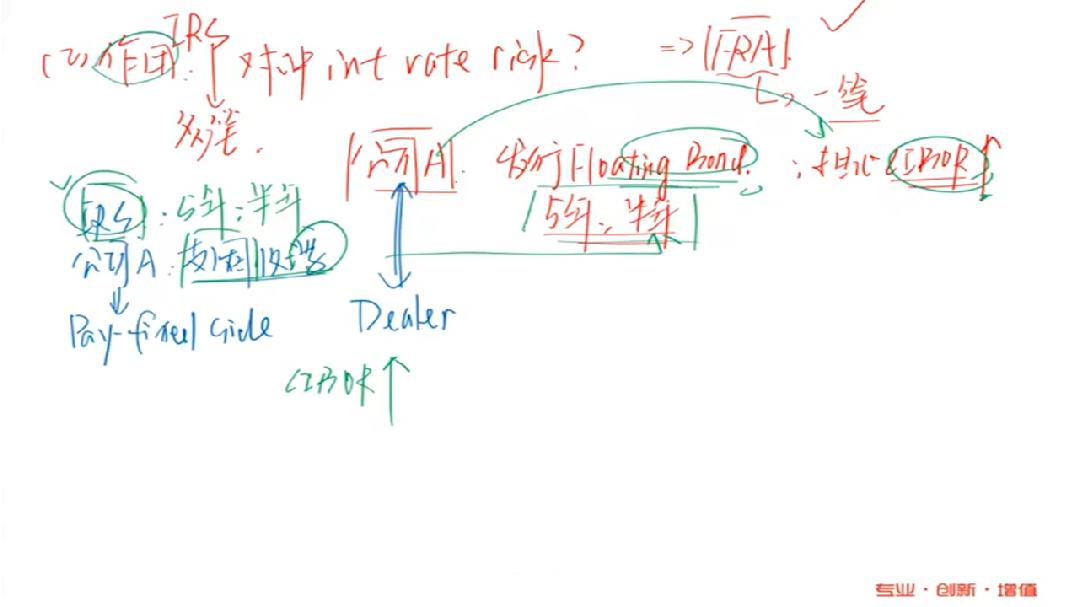 (2) 作用: IRS 对冲 int rate risk? => |FRA|.
多笔. ↳ 一笔
|公司A|. 发行 Floating Bond. ; 担心 LIBOR ↑
IRS : 5年; 半年 |5年; 半年|
公司A: 支固定 收浮
Pay-fixed side
Dealer
LIBOR ↑
专业·创新·增值